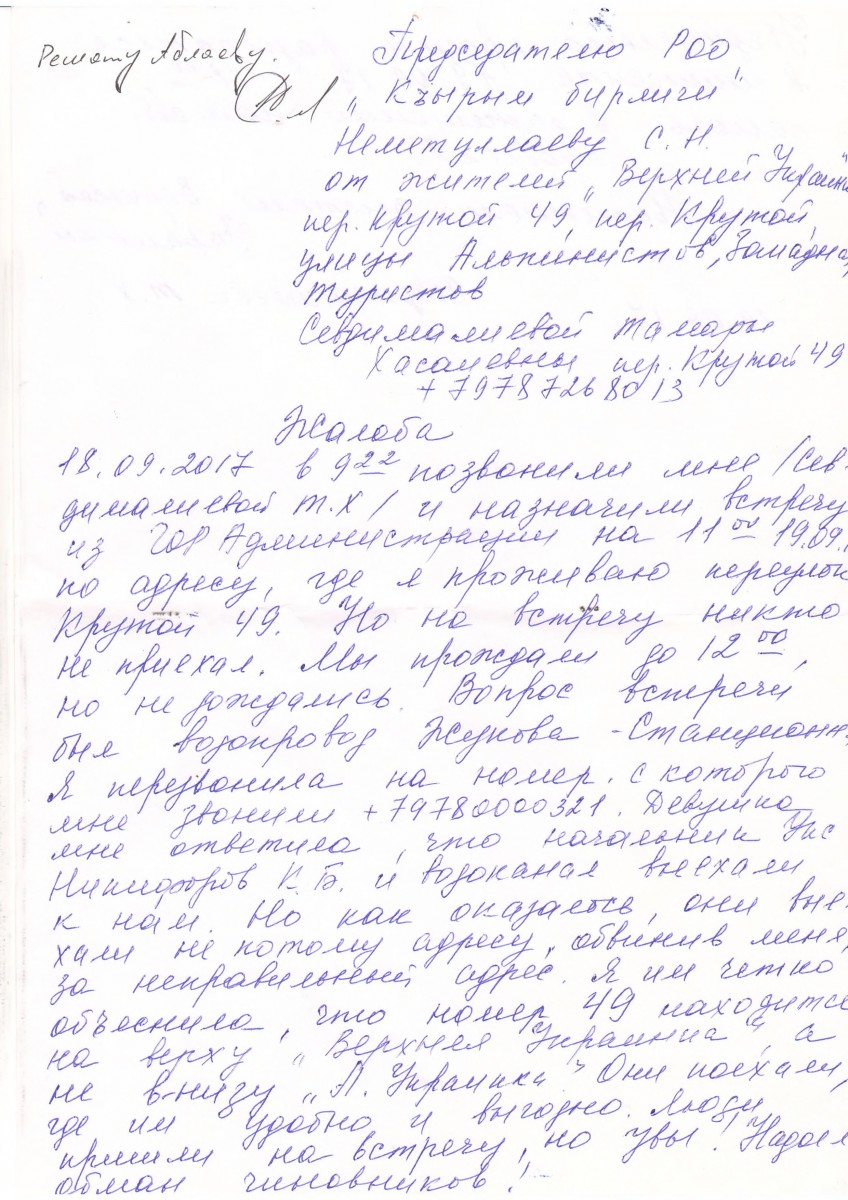 Решату Аблаеву.
Председателю РОО
"Къырым бирлиги"
Неметуллаеву С. Н.
от жителей "Верхней Украинк
пер. Крутой 49, пер. Крутой,
улицы Альпинистов, Западная,
Туристов
Севдималиевой Тамары
Хасановны пер. Крутой 49
+79787268013
Жалоба
18.09.2017 в 9 22 позвонили мне /Сев-
дималиевой Т.Х/ и назначили встречу
из Гор Администрации на 11 00 19.09.
по адресу, где я проживаю переулок
Крутой 49. Но на встречу никто
не приехал. Мы прождали до 12 00,
но не дождались. Вопрос встречи
был водопровод Жукова - Станционн
Я перезвонила на номер. с которого
мне звонили +79780000321. Девушка
мне ответила, что начальник Укс
Никифоров К.Б. и водоканал выехали
к нам. Но как оказалось, они вые-
хали не потому адресу, обвинив меня,
за неправильный адрес. Я им четко
объеснила, что номер 49 находится
на верху "Верхняя Украинка", а
не в-низу "Л. Украинка" Они поехали,
где им удобно и выгодно. Люди
пришли на встречу, но увы! Надоел
обман чиновников!